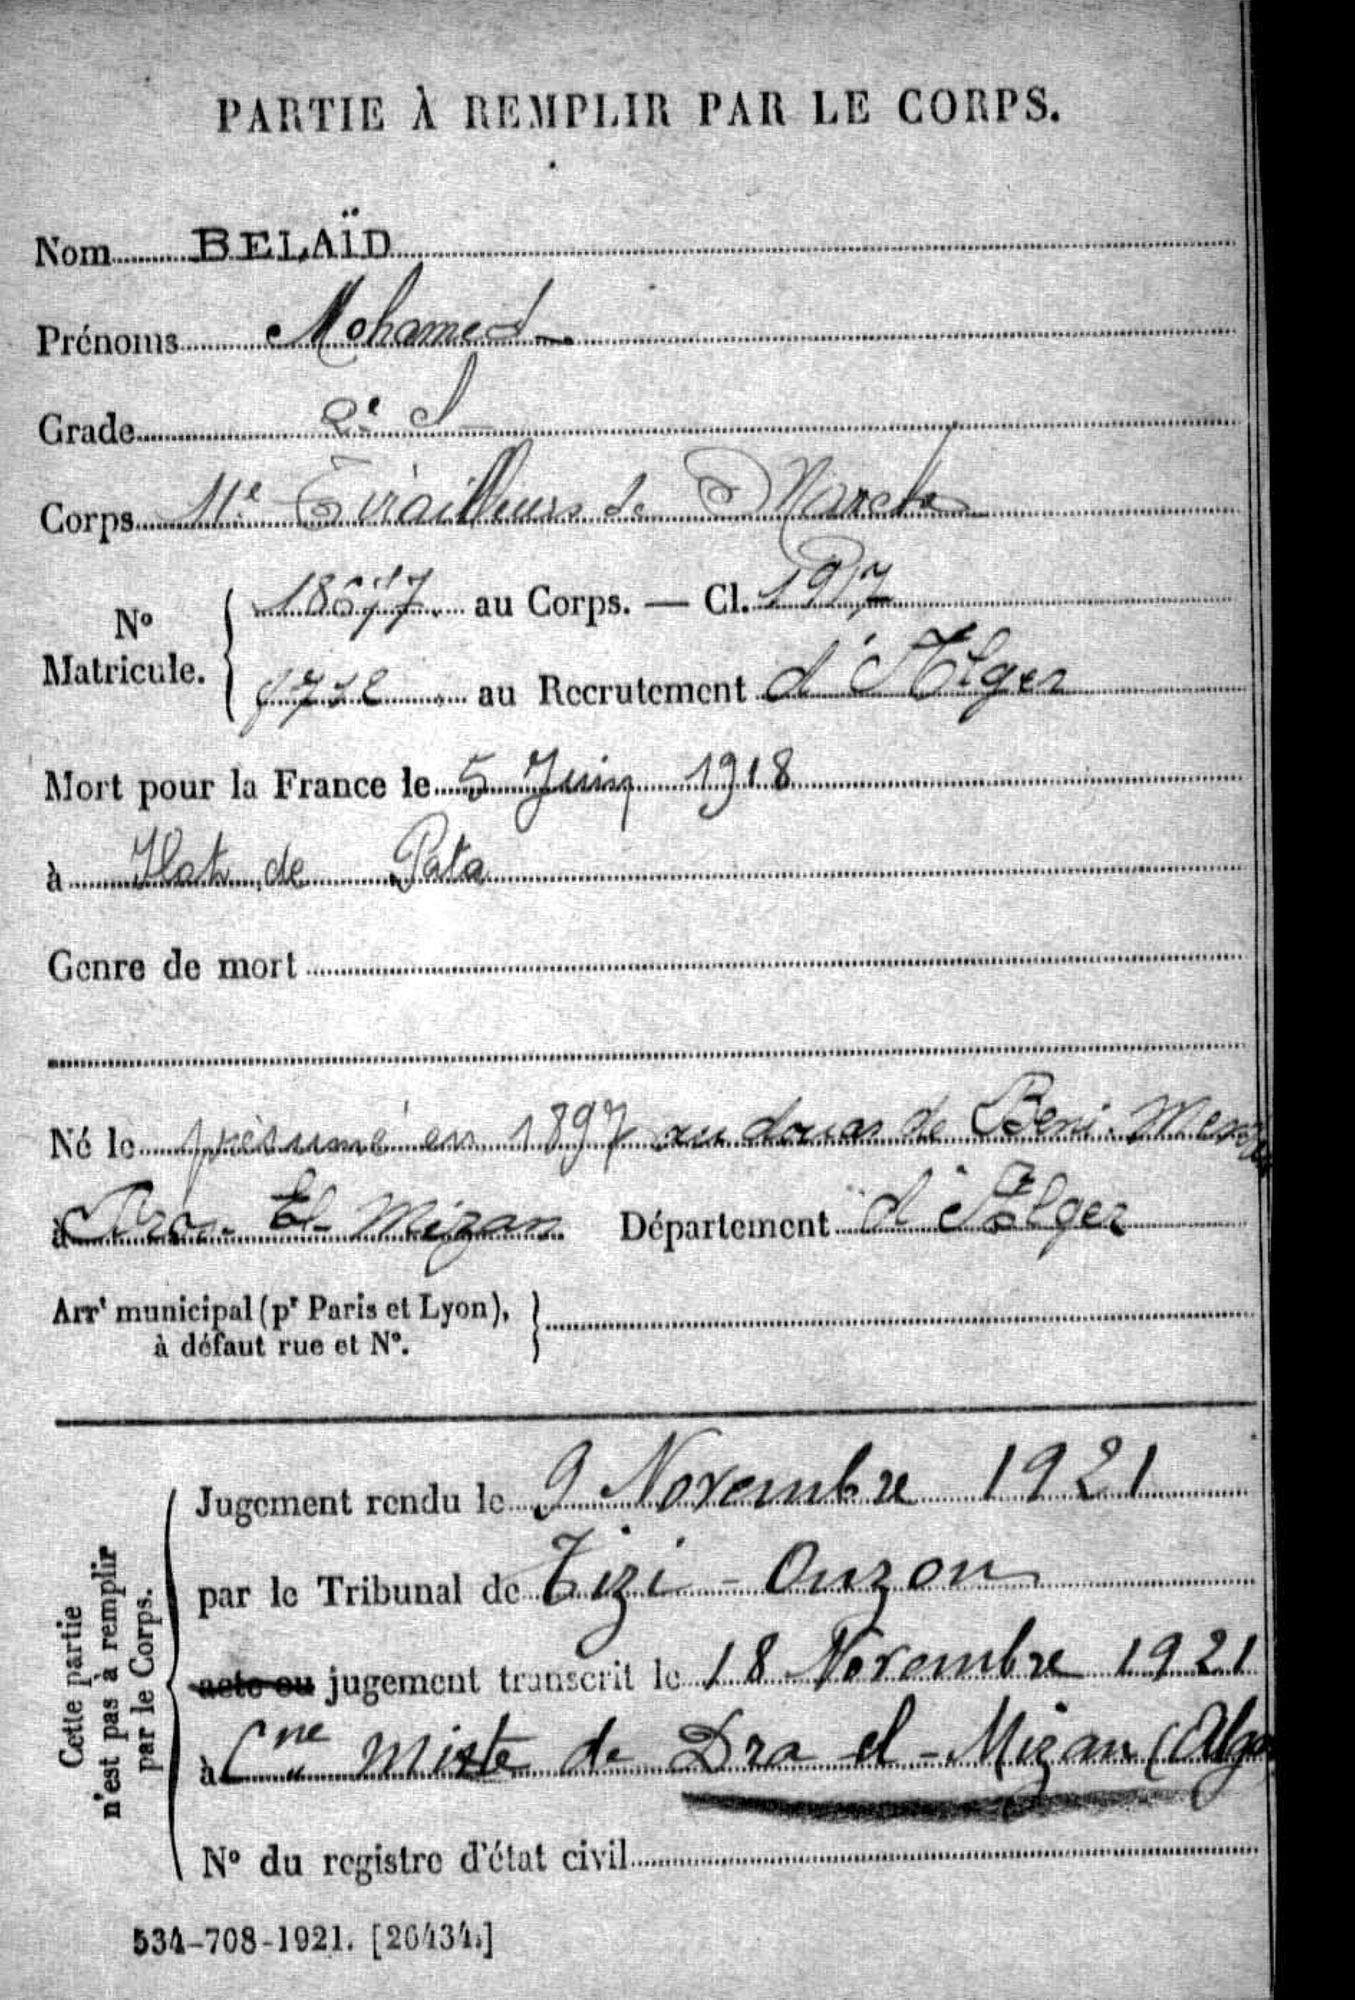 PARTIE À REMPLIR PAR LE CORPS.
Nom BELAÏD
Prénoms Mohamed
Grade 2e Cl
Corps 11e Tirailleurs de Marche
No Matricule. 18677 au Corps. — Cl. 1917
au Recrutement d'Alger
Mort pour la France le 5 Juin 1918
à de
Genre de mort
Né le présumé en 1897 au douar de Beni.
à Dra-El-Mizan Département d'Alger
Arrt municipal (pr Paris et Lyon), à défaut rue et No.
Cette partie n'est pas à remplir par le Corps.
Jugement rendu le 9 Novembre 1921
par le Tribunal de Tizi-Ouzou
acte ou jugement transcrit le 18 Novembre 1921
à Cne Mixte de Dra-el-Mizan (Alg
No du registre d'état civil
534-708-1921. [26434.]